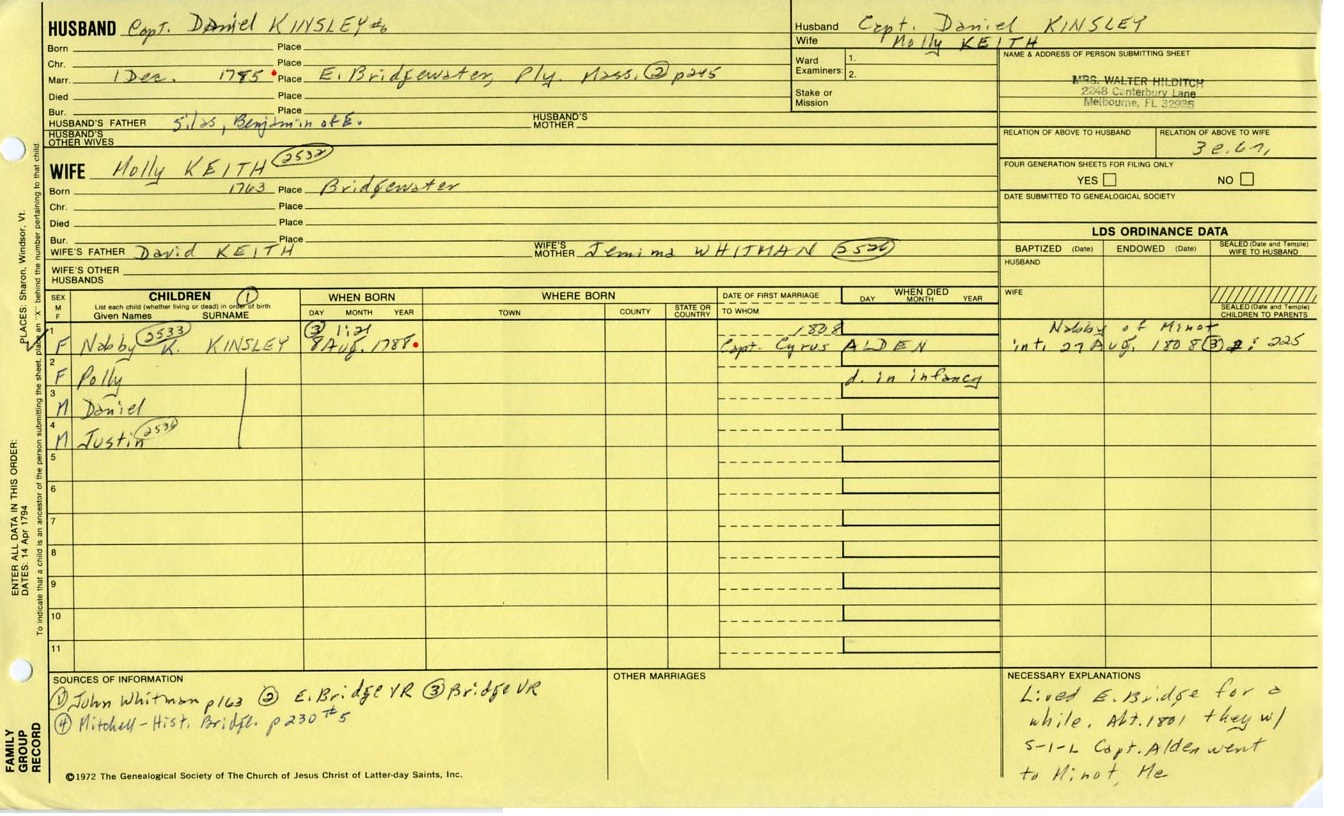 HUSBAND Capt. Daniel KINSLEY #6
Born Place
Chr. Place
Marr. 1 Dec. 1785 Place E. Bridgewater, Ply. Mass. ② p245
Died Place
Bur. Place
HUSBAND'S FATHER Silas, Benjamin of E. HUSBAND'S MOTHER
HUSBAND'S OTHER WIVES
Husband Capt. Daniel KINSLEY
Wife Molly KEITH
Ward 1.
Examiners: 2.
Stake or Mission
NAME & ADDRESS OF PERSON SUBMITTING SHEET
MRS. WALTER HILDITCH
2248 Canterbury Lane
Melbourne, FL 32935
RELATION OF ABOVE TO HUSBAND RELATION OF ABOVE TO WIFE
FOUR GENERATION SHEETS FOR FILING ONLY
YES NO
DATE SUBMITTED TO GENEALOGICAL SOCIETY
WIFE Molly KEITH 2532
Born 1763 Place Bridgewater
Chr. Place
Died Place
Bur. Place
WIFE'S FATHER David KEITH WIFE'S MOTHER Jemima WHITMAN 2526
WIFE'S OTHER HUSBANDS
LDS ORDINANCE DATA
BAPTIZED (Date) ENDOWED (Date) SEALED (Date and Temple) WIFE TO HUSBAND
HUSBAND
WIFE
SEALED (Date and Temple) CHILDREN TO PARENTS
SEX M F CHILDREN ① List each child (whether living or dead) in order of birth Given Names SURNAME
WHEN BORN DAY MONTH YEAR
WHERE BORN TOWN COUNTY STATE OR COUNTRY
DATE OF FIRST MARRIAGE TO WHOM
WHEN DIED DAY MONTH YEAR
1 ③ 1:21 1808 Nabby of Minot
F Nabby K. KINSLEY 2533 8 Aug. 1788 Capt. Cyrus ALDEN int. 27 Aug. 1808 ③ 2: 225
2 F Polly d. in infancy
3 M Daniel
4 M Justin 2534
5
6
7
8
9
10
11
SOURCES OF INFORMATION
① John Whitman p163 ② E. Bridge VR ③ Bridge VR
④ Mitchell-Hist. Bridge. p230 #5
©1972 The Genealogical Society of The Church of Jesus Christ of Latter-day Saints, Inc.
OTHER MARRIAGES
NECESSARY EXPLANATIONS
Lived E. Bridge for a
while. Abt. 1801 they w/
S-I-L Capt. Alden went
to Minot, Me
ENTER ALL DATA IN THIS ORDER:
DATES: 14 Apr 1794
PLACES: Sharon, Windsor, Vt.
To indicate that a child is an ancestor of the person submitting the sheet, place an "X" behind the number pertaining to that child.
FAMILY GROUP RECORD